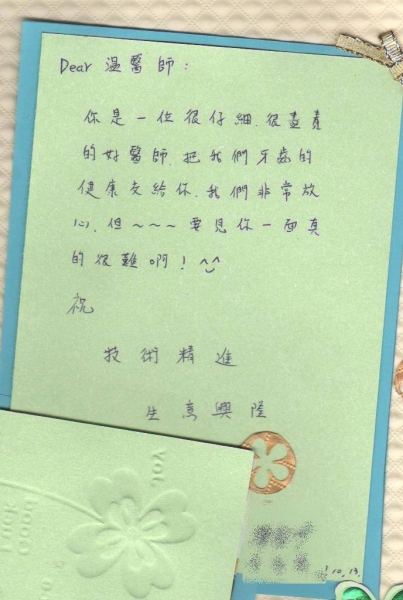 Dear 溫醫師：
你是一位很仔細、很盡責
的好醫師、把我們牙齒的
健康交給你、我們非常放
心、但～～～要見你一面真
的很難啊！^^
祝
技術精進
生意興隆
10,13,
YOU
GOOD LUCK